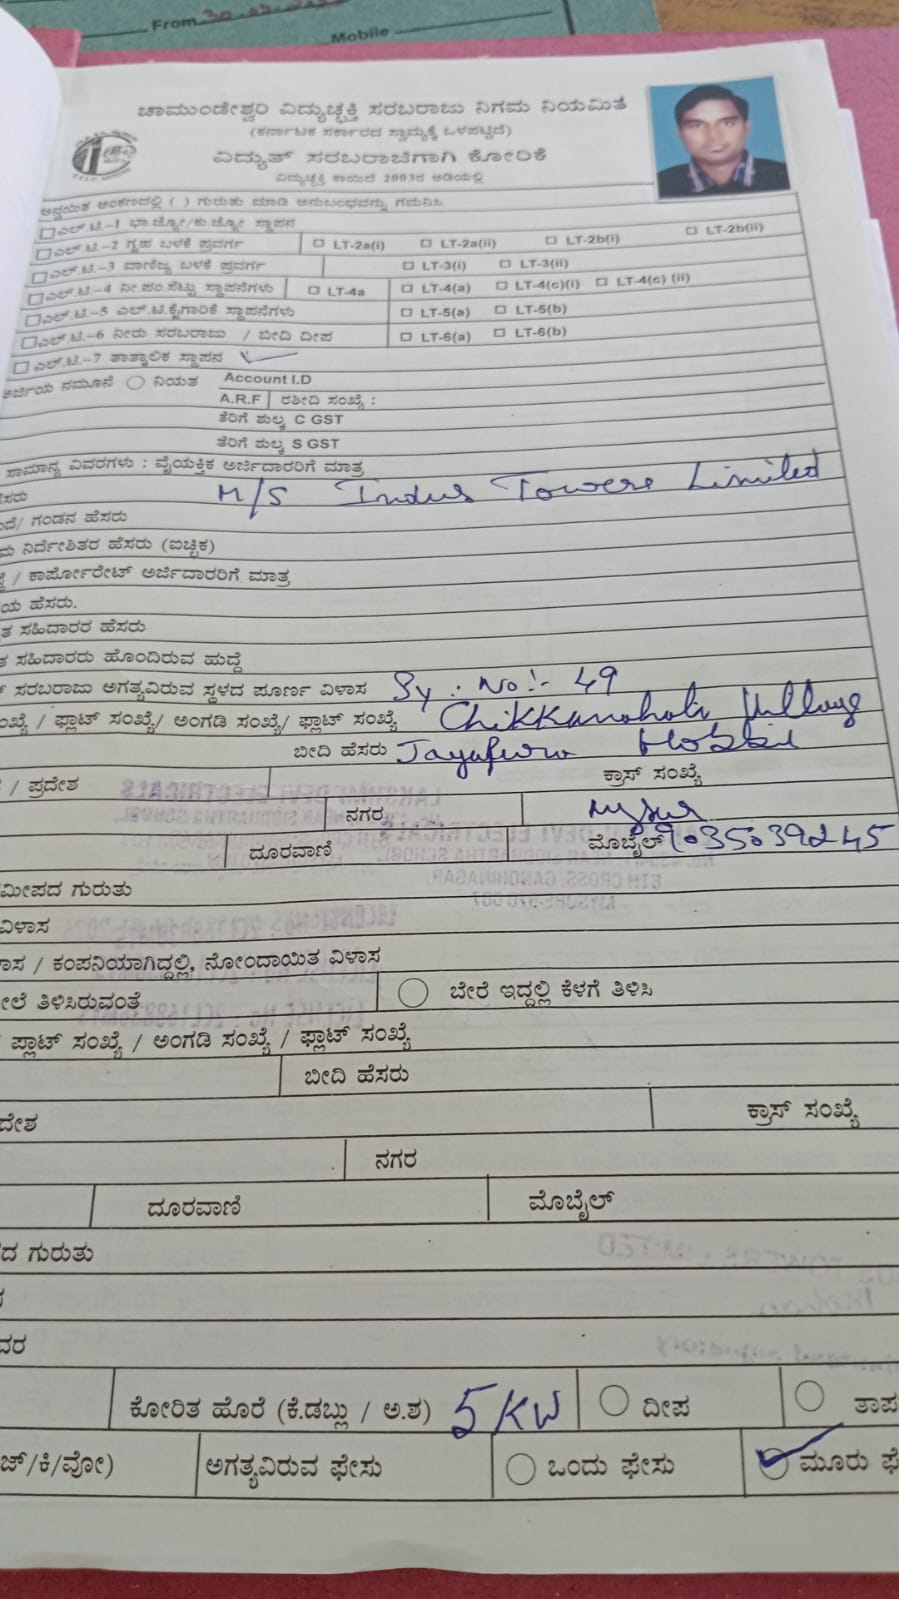 From 30.
Mobile
ಚಾಮುಂಡೇಶ್ವರಿ ವಿದ್ಯುಚ್ಛಕ್ತಿ ಸರಬರಾಜು ನಿಗಮ ನಿಯಮಿತ
(ಕರ್ನಾಟಕ ಸರ್ಕಾರದ ಸ್ವಾಮ್ಯಕ್ಕೆ ಒಳಪಟ್ಟಿದೆ)
ವಿದ್ಯುತ್ ಸರಬರಾಜಿಗಾಗಿ ಕೋರಿಕೆ
ವಿದ್ಯುಚ್ಛಕ್ತಿ ಕಾಯಿದೆ 2003ರ ಅಡಿಯಲ್ಲಿ
ಅನ್ವಯಿತ ಅಂಕಣದಲ್ಲಿ ( ) ಗುರುತು ಮಾಡಿ ಅನುಬಂಧವನ್ನು ಗಮನಿಸಿ.
ಎಲ್.ಟಿ.-1 ಭಾ.ಜ್ಯೋ/ಕು.ಜ್ಯೋ ಸ್ಥಾಪನ
ಎಲ್.ಟಿ.-2 ಗೃಹ ಬಳಕೆ ಪ್ರವರ್ಗ LT-2a(i) LT-2a(ii) LT-2b(i) LT-2b(ii)
ಎಲ್.ಟಿ.-3 ವಾಣಿಜ್ಯ ಬಳಕೆ ಪ್ರವರ್ಗ LT-3(i) LT-3(ii)
ಎಲ್.ಟಿ.-4 ನೀ.ಪಂ.ಸೆಟ್ಟು ಸ್ಥಾಪನೆಗಳು LT-4a LT-4(a) LT-4(c)(i) LT-4(c) (ii)
ಎಲ್.ಟಿ.-5 ಎಲ್.ಟಿ.ಕೈಗಾರಿಕೆ ಸ್ಥಾಪನೆಗಳು LT-5(a) LT-5(b)
ಎಲ್.ಟಿ.-6 ನೀರು ಸರಬರಾಜು / ಬೀದಿ ದೀಪ LT-6(a) LT-6(b)
ಎಲ್.ಟಿ.-7 ತಾತ್ಕಾಲಿಕ ಸ್ಥಾಪನ
ಅರ್ಜಿಯ ನಮೂನೆ ನಿಯತ Account I.D
A.R.F ರಶೀದಿ ಸಂಖ್ಯೆ :
ತೆರಿಗೆ ಶುಲ್ಕ C GST
ತೆರಿಗೆ ಶುಲ್ಕ S GST
ಸಾಮಾನ್ಯ ವಿವರಗಳು : ವೈಯಕ್ತಿಕ ಅರ್ಜಿದಾರರಿಗೆ ಮಾತ್ರ
ಸರು M/S Indus Towers Limited
ದೆ/ ಗಂಡನ ಹೆಸರು
ನಿರ್ದೇಶಿತರ ಹೆಸರು (ಐಚ್ಛಿಕ)
/ ಕಾರ್ಪೋರೇಟ್ ಅರ್ಜಿದಾರರಿಗೆ ಮಾತ್ರ
ಯ ಹೆಸರು.
ತ ಸಹಿದಾರರ ಹೆಸರು
ಸಹಿದಾರರು ಹೊಂದಿರುವ ಹುದ್ದೆ
ಸರಬರಾಜು ಅಗತ್ಯವಿರುವ ಸ್ಥಳದ ಪೂರ್ಣ ವಿಳಾಸ Sy. No:- 49
ಂಖ್ಯೆ / ಫ್ಲಾಟ್ ಸಂಖ್ಯೆ/ ಅಂಗಡಿ ಸಂಖ್ಯೆ/ ಫ್ಲಾಟ್ ಸಂಖ್ಯೆ Village
ಬೀದಿ ಹೆಸರು Hobli
/ ಪ್ರದೇಶ ಕ್ರಾಸ್ ಸಂಖ್ಯೆ
ನಗರ
ದೂರವಾಣಿ ಮೊಬೈಲ್ 9035039245
ಮೀಪದ ಗುರುತು
ವಿಳಾಸ
ಾಸ / ಕಂಪನಿಯಾಗಿದ್ದಲ್ಲಿ, ನೋಂದಾಯಿತ ವಿಳಾಸ
ೇಲೆ ತಿಳಿಸಿರುವಂತೆ ಬೇರೆ ಇದ್ದಲ್ಲಿ ಕೆಳಗೆ ತಿಳಿಸಿ
ಪ್ಲಾಟ್ ಸಂಖ್ಯೆ / ಅಂಗಡಿ ಸಂಖ್ಯೆ / ಫ್ಲಾಟ್ ಸಂಖ್ಯೆ
ಬೀದಿ ಹೆಸರು
ದೇಶ ಕ್ರಾಸ್ ಸಂಖ್ಯೆ
ನಗರ
ದೂರವಾಣಿ ಮೊಬೈಲ್
ದ ಗುರುತು
ವರ
ಕೋರಿತ ಹೊರೆ (ಕೆ.ಡಬ್ಲು / ಅ.ಶ) 5 KW ದೀಪ ತಾಪ
ಜ್/ಕಿ/ವೋ) ಅಗತ್ಯವಿರುವ ಫೇಸು ಒಂದು ಫೇಸು ಮೂರು ಫೆ